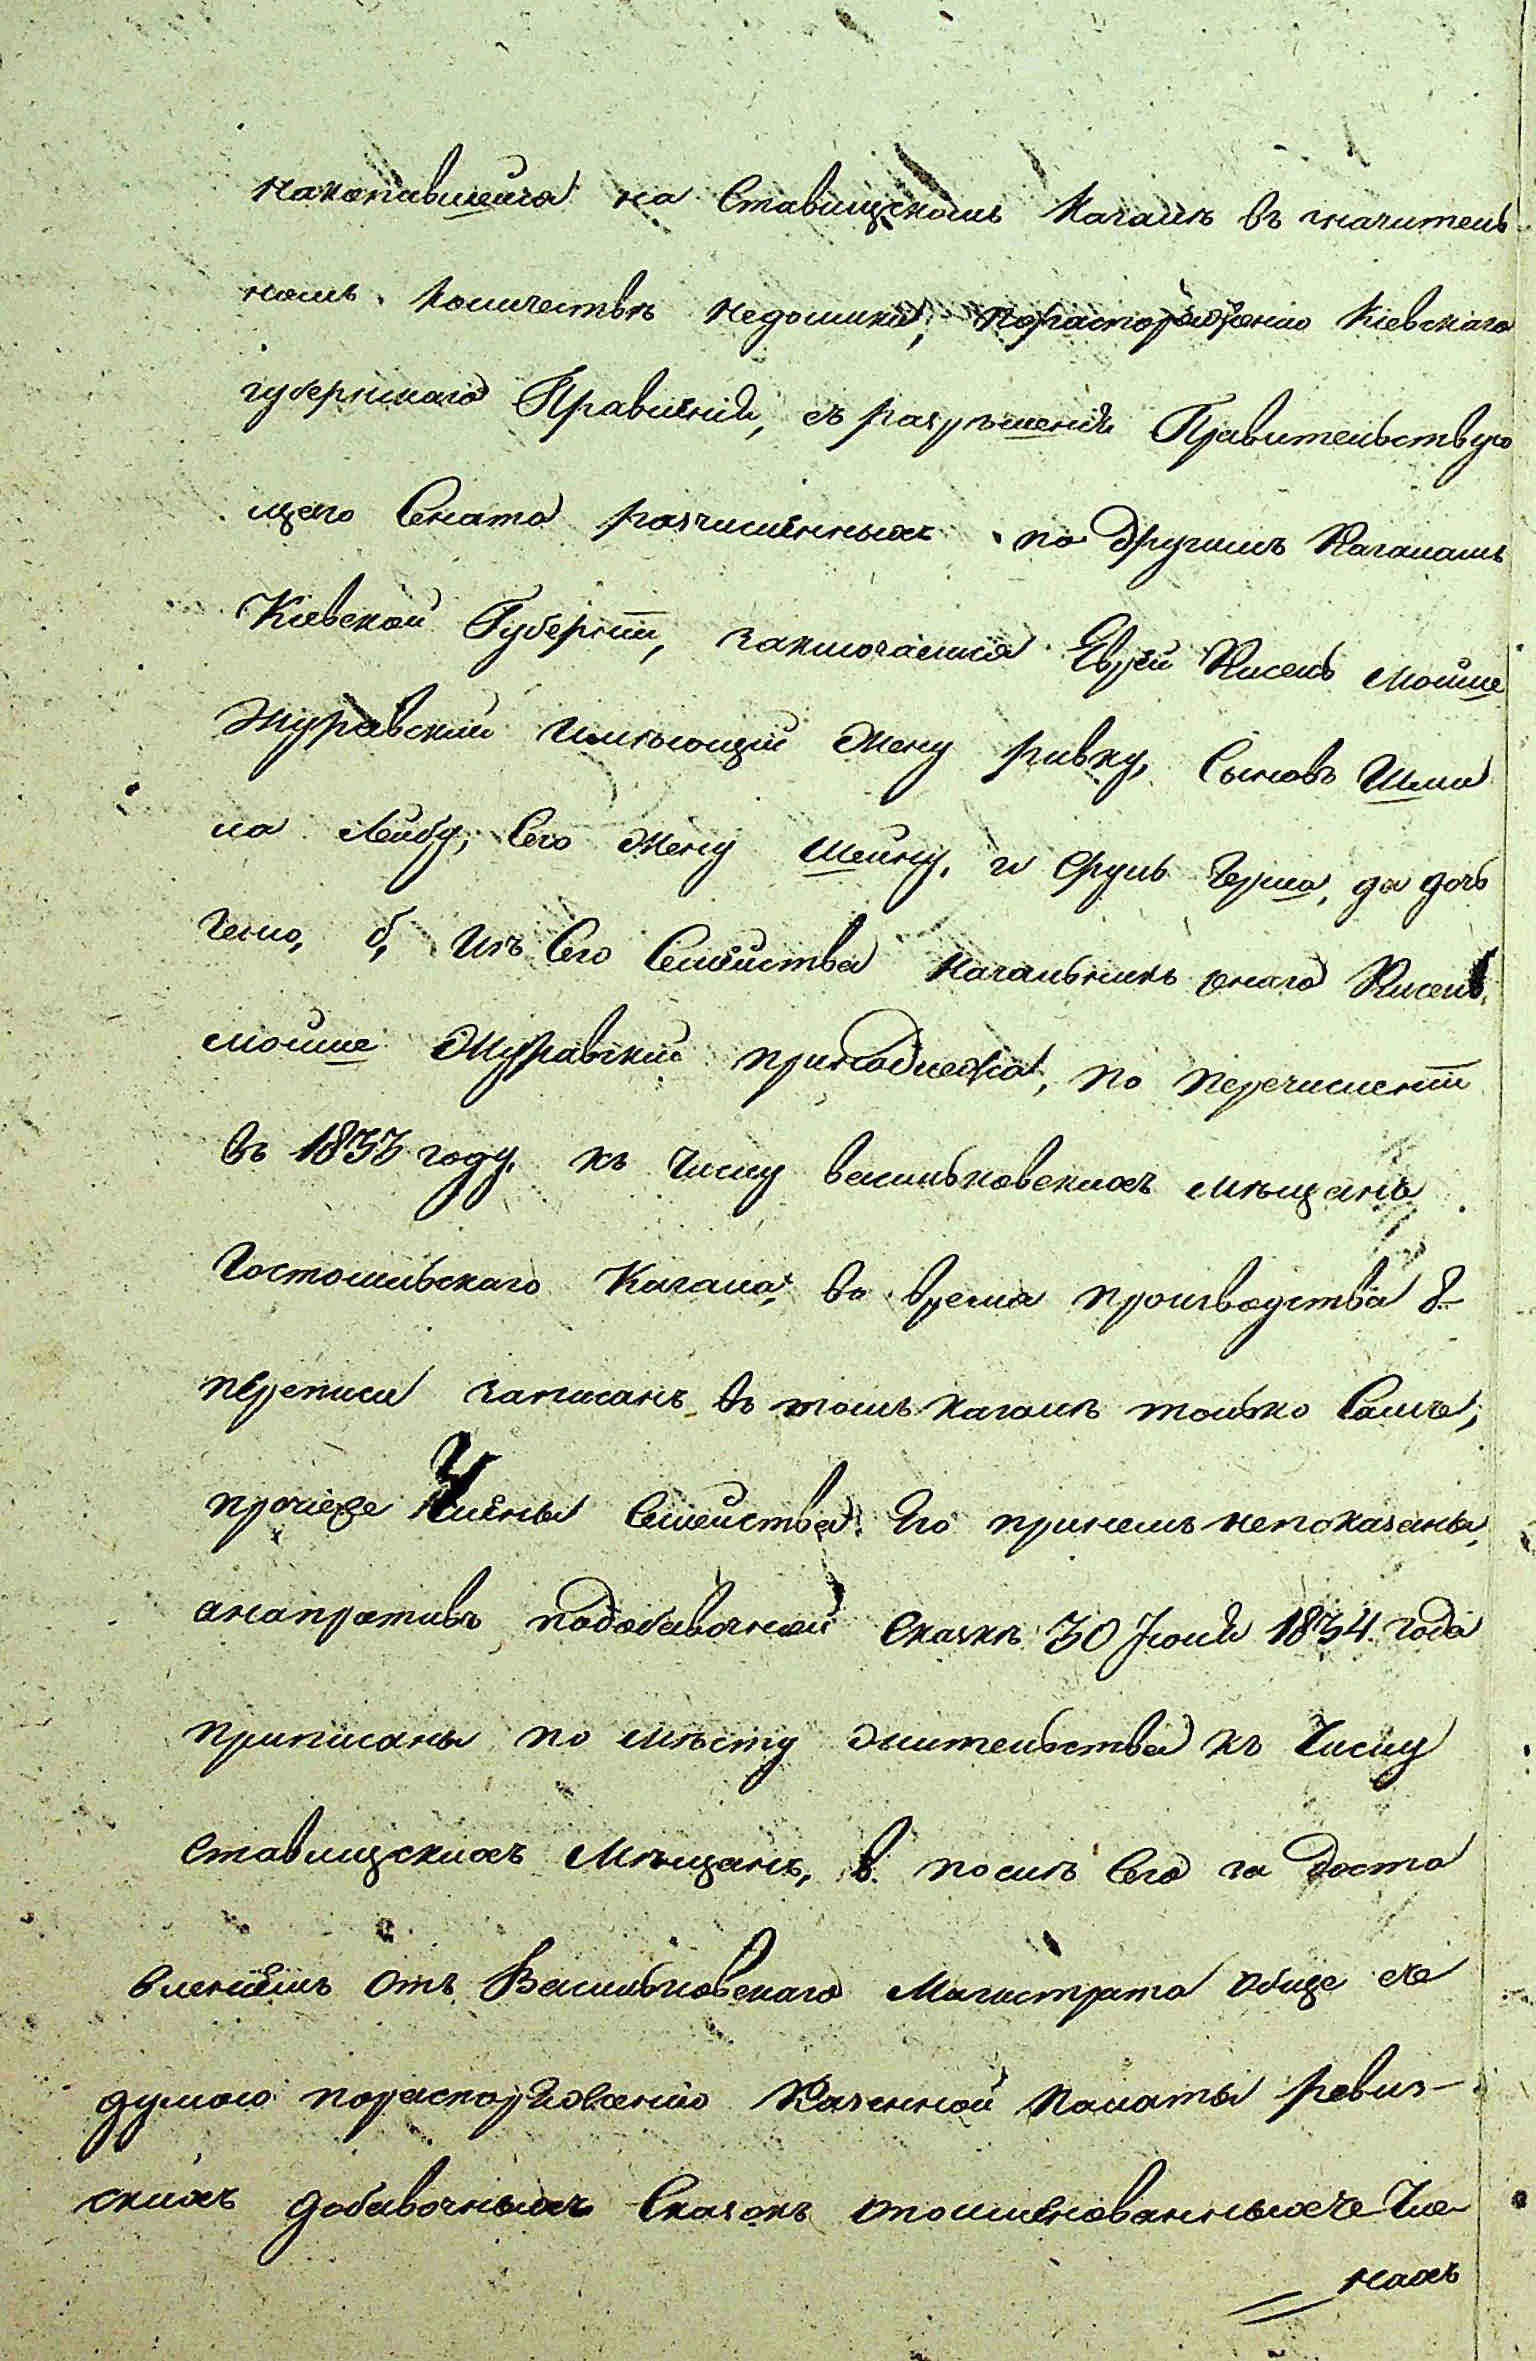 накопившейся на Ставищскомъ Кагалѣ въ значитель
номъ количествѣ недоимки, пораспоряженію Кіевскаго
губернскаго Правленія, съ разрѣшенія Правительствую
щего Сената разчисленныхъ по другимъ Кагаламъ
Кіевской Губерніи, заключается Еврей Кисель Мошие
Журавскій имѣющій жену Ривку, Сыновъ Шми
ла Лейбу, Его жену Шейну, и Сруль Герша, да дочь
Геню, б, изъ Сего Семейства начальникъ онаго Кисель
Мошие Журавскій принадлежа, по перечисленіи
въ 1833 году, къ числу васильковскихъ мѣщанъ
Гостомельскаго Кагала, во время производства 8-
переписи записанъ въ томъ кагалѣ только Самъ,
прочіеже Члены Семейства Его принемъ непоказаны,
анапротивъ подобавочной Сказкѣ 30 Іюня 1834 года
приписаны по мѣсту жительства къ числу
Ставищскихъ Мѣщанъ, в. послѣ Сего за доста
вленіемъ отъ Васильковскаго Магистрата обще съ
думою пораспоряженію Казенной Палаты ревиз-
скихъ добавочныхъ Сказокъ опоименованныхъ Чле
нахъ